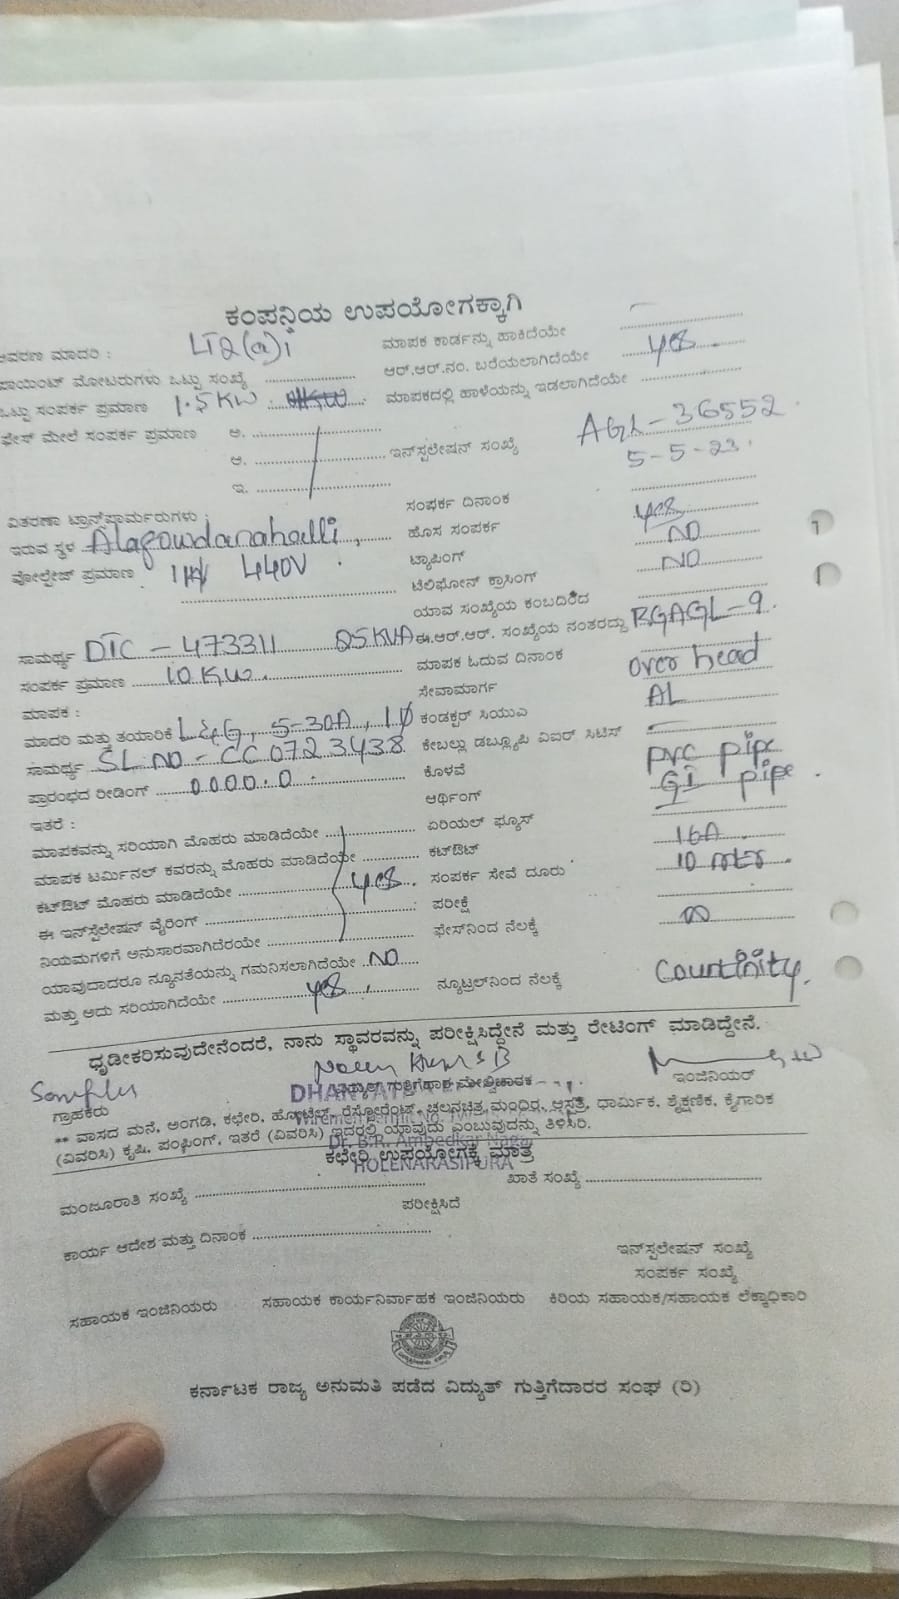 ಕಂಪನಿಯ ಉಪಯೋಗಕ್ಕಾಗಿ
ಮಾದರಿ : LT2(a)i ಮಾಪಕ ಕಾರ್ಡನ್ನು ಹಾಕಿದೆಯೇ
ಪಾಯಿಂಟ್ ಮೋಟರುಗಳು ಒಟ್ಟು ಸಂಖ್ಯೆ ಆರ್.ಆರ್.ನಂ. ಬರೆಯಲಾಗಿದೆಯೇ yes
ಒಟ್ಟು ಸಂಪರ್ಕ ಪ್ರಮಾಣ 1.5KW ಮಾಪಕದಲ್ಲಿ ಹಾಳೆಯನ್ನು ಇಡಲಾಗಿದೆಯೇ
ಫೇಸ್ ಮೇಲೆ ಸಂಪರ್ಕ ಪ್ರಮಾಣ ಅ. AGL-36552
ಆ. ಇನ್‌ಸ್ಟಲೇಷನ್ ಸಂಖ್ಯೆ 5-5-23
ಇ.
ವಿತರಣಾ ಟ್ರಾನ್ಸ್‌ಫಾರ್ಮರುಗಳು : ಸಂಪರ್ಕ ದಿನಾಂಕ
ಇರುವ ಸ್ಥಳ Alagowdanahalli, ಹೊಸ ಸಂಪರ್ಕ yes
ವೋಲ್ಟೇಜ್ ಪ್ರಮಾಣ 440V ಟ್ಯಾಪಿಂಗ್ NO
ಟೆಲಿಫೋನ್ ಕ್ರಾಸಿಂಗ್ NO
ಯಾವ ಸಂಖ್ಯೆಯ ಕಂಬದಿಂದ
ಸಾಮರ್ಥ್ಯ DTC - 473311 25KVA ಈ.ಆರ್.ಆರ್. ಸಂಖ್ಯೆಯ ನಂತರದ್ದು RGAGL-9.
ಸಂಪರ್ಕ ಪ್ರಮಾಣ 10KW. ಮಾಪಕ ಓದುವ ದಿನಾಂಕ
ಮಾಪಕ : ಸೇವಾಮಾರ್ಗ over head
ಮಾದರಿ ಮತ್ತು ತಯಾರಿಕೆ L&G, 5-30A, 1Ø ಕಂಡಕ್ಟರ್ ಸಿಯುಎ AL
ಸಾಮರ್ಥ್ಯ SL NO - CC0723438 ಕೇಬಲ್ಲು ಡಬ್ಲ್ಯೂಪಿ ವಿಐಆರ್ ಸಿಟಿಸ್
ಪ್ರಾರಂಭದ ರೀಡಿಂಗ್ 0000.0 ಕೊಳವೆ PVC pipe
ಇತರೆ : ಆರ್ಥಿಂಗ್ GI pipe.
ಮಾಪಕವನ್ನು ಸರಿಯಾಗಿ ಮೊಹರು ಮಾಡಿದೆಯೇ ಏರಿಯಲ್ ಫ್ಯೂಸ್
ಮಾಪಕ ಟರ್ಮಿನಲ್ ಕವರನ್ನು ಮೊಹರು ಮಾಡಿದೆಯೇ ಕಟ್‌ಔಟ್ 16A.
ಕಟ್‌ಔಟ್ ಮೊಹರು ಮಾಡಿದೆಯೇ yes. ಸಂಪರ್ಕ ಸೇವೆ ದೂರು 10
ಈ ಇನ್‌ಸ್ಟೆಲೇಷನ್ ವೈರಿಂಗ್ ಪರೀಕ್ಷೆ
ನಿಯಮಗಳಿಗೆ ಅನುಸಾರವಾಗಿದೆರಯೇ ಫೇಸ್‌ನಿಂದ ನೆಲಕ್ಕೆ ∞
ಯಾವುದಾದರೂ ನ್ಯೂನತೆಯನ್ನು ಗಮನಿಸಲಾಗಿದೆಯೇ NO
ಮತ್ತು ಅದು ಸರಿಯಾಗಿದೆಯೇ yes ನ್ಯೂಟ್ರಲ್‌ನಿಂದ ನೆಲಕ್ಕೆ Countinity.
ಧೃಡೀಕರಿಸುವುದೇನೆಂದರೆ, ನಾನು ಸ್ಥಾವರವನ್ನು ಪರೀಕ್ಷಿಸಿದ್ದೇನೆ ಮತ್ತು ರೇಟಿಂಗ್ ಮಾಡಿದ್ದೇನೆ.
ಗ್ರಾಹಕರು ಇಂಜಿನಿಯರ್
** ವಾಸದ ಮನೆ, ಅಂಗಡಿ, ಕಛೇರಿ, ಹೋಟೆಲ್, ರೆಸ್ಟೋರೆಂಟ್, ಚಲನಚಿತ್ರ ಮಂದಿರ, ಆಸ್ಪತ್ರೆ, ಧಾರ್ಮಿಕ, ಶೈಕ್ಷಣಿಕ, ಕೈಗಾರಿಕ
(ವಿವರಿಸಿ) ಕೃಷಿ, ಪಂಪಿಂಗ್, ಇತರೆ (ವಿವರಿಸಿ) ಇದರಲ್ಲಿ ಯಾವುದು ಎಂಬುವುದನ್ನು ತಿಳಿಸಿರಿ.
Dr. B.R. Ambedkar Nagar
ಕಛೇರಿ ಉಪಯೋಗಕ್ಕೆ ಮಾತ್ರ
HOLENARASIPURA
ಮಂಜೂರಾತಿ ಸಂಖ್ಯೆ ಖಾತೆ ಸಂಖ್ಯೆ
ಪರೀಕ್ಷಿಸಿದೆ
ಕಾರ್ಯ ಆದೇಶ ಮತ್ತು ದಿನಾಂಕ
ಇನ್‌ಸ್ಟಲೇಷನ್ ಸಂಖ್ಯೆ
ಸಂಪರ್ಕ ಸಂಖ್ಯೆ
ಸಹಾಯಕ ಇಂಜಿನಿಯರು ಸಹಾಯಕ ಕಾರ್ಯನಿರ್ವಾಹಕ ಇಂಜಿನಿಯರು ಕಿರಿಯ ಸಹಾಯಕ/ಸಹಾಯಕ ಲೆಕ್ಕಾಧಿಕಾರಿ
ಕರ್ನಾಟಕ ರಾಜ್ಯ ಅನುಮತಿ ಪಡೆದ ವಿದ್ಯುತ್ ಗುತ್ತಿಗೆದಾರರ ಸಂಘ (ರಿ)